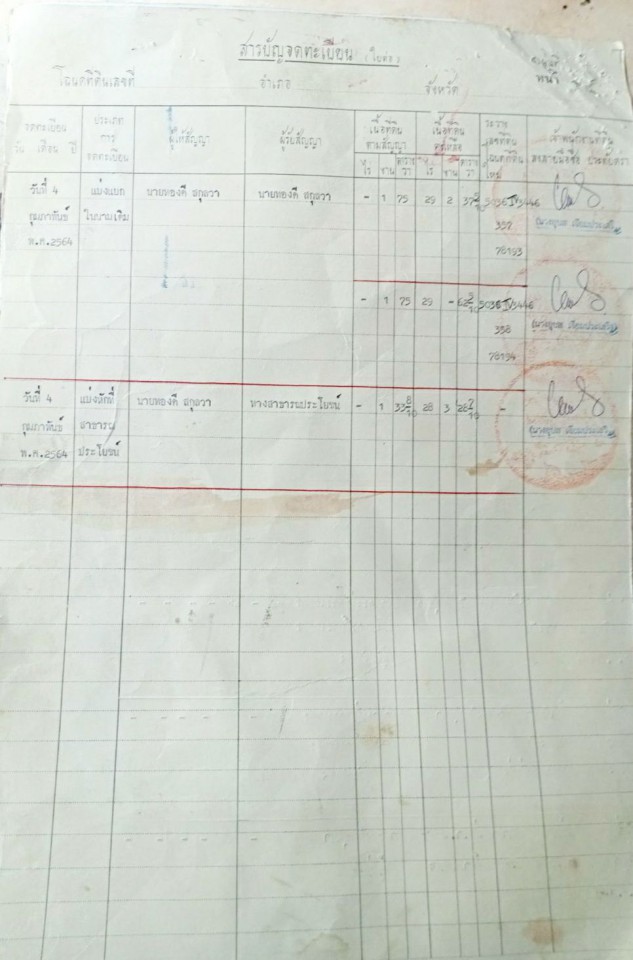 สารบัญจดทะเบียน (ใบต่อ)
หน้า
โฉนดที่ดินเลขที่ อำเภอ จังหวัด
จดทะเบียน วัน เดือน ปี
ประเภทการจดทะเบียน
ผู้ให้สัญญา
ผู้รับสัญญา
เนื้อที่ดินตามสัญญา
ไร่ งาน ตารางวา
เนื้อที่ดินคงเหลือ
ไร่ งาน ตารางวา
ระวาง เลขที่ดิน โฉนดที่ดินใหม่
เจ้าพนักงานที่ดิน ลงลายมือชื่อ ประทับตรา
วันที่ 4 แบ่งแยก นายทองดี สกุลวา นายทองดี สกุลวา - 1 75 29 2 5036 IV 3446
กุมภาพันธ์ ในนามเดิม 337
พ.ศ.2564 78193
- 1 75 29 - 5036 IV 3446
338
78194
วันที่ 4 แบ่งหักที่ นายทองดี สกุลวา ทางสาธารณประโยชน์ - 1 33 8/10 28 3 -
กุมภาพันธ์ สาธารณ
พ.ศ.2564 ประโยชน์